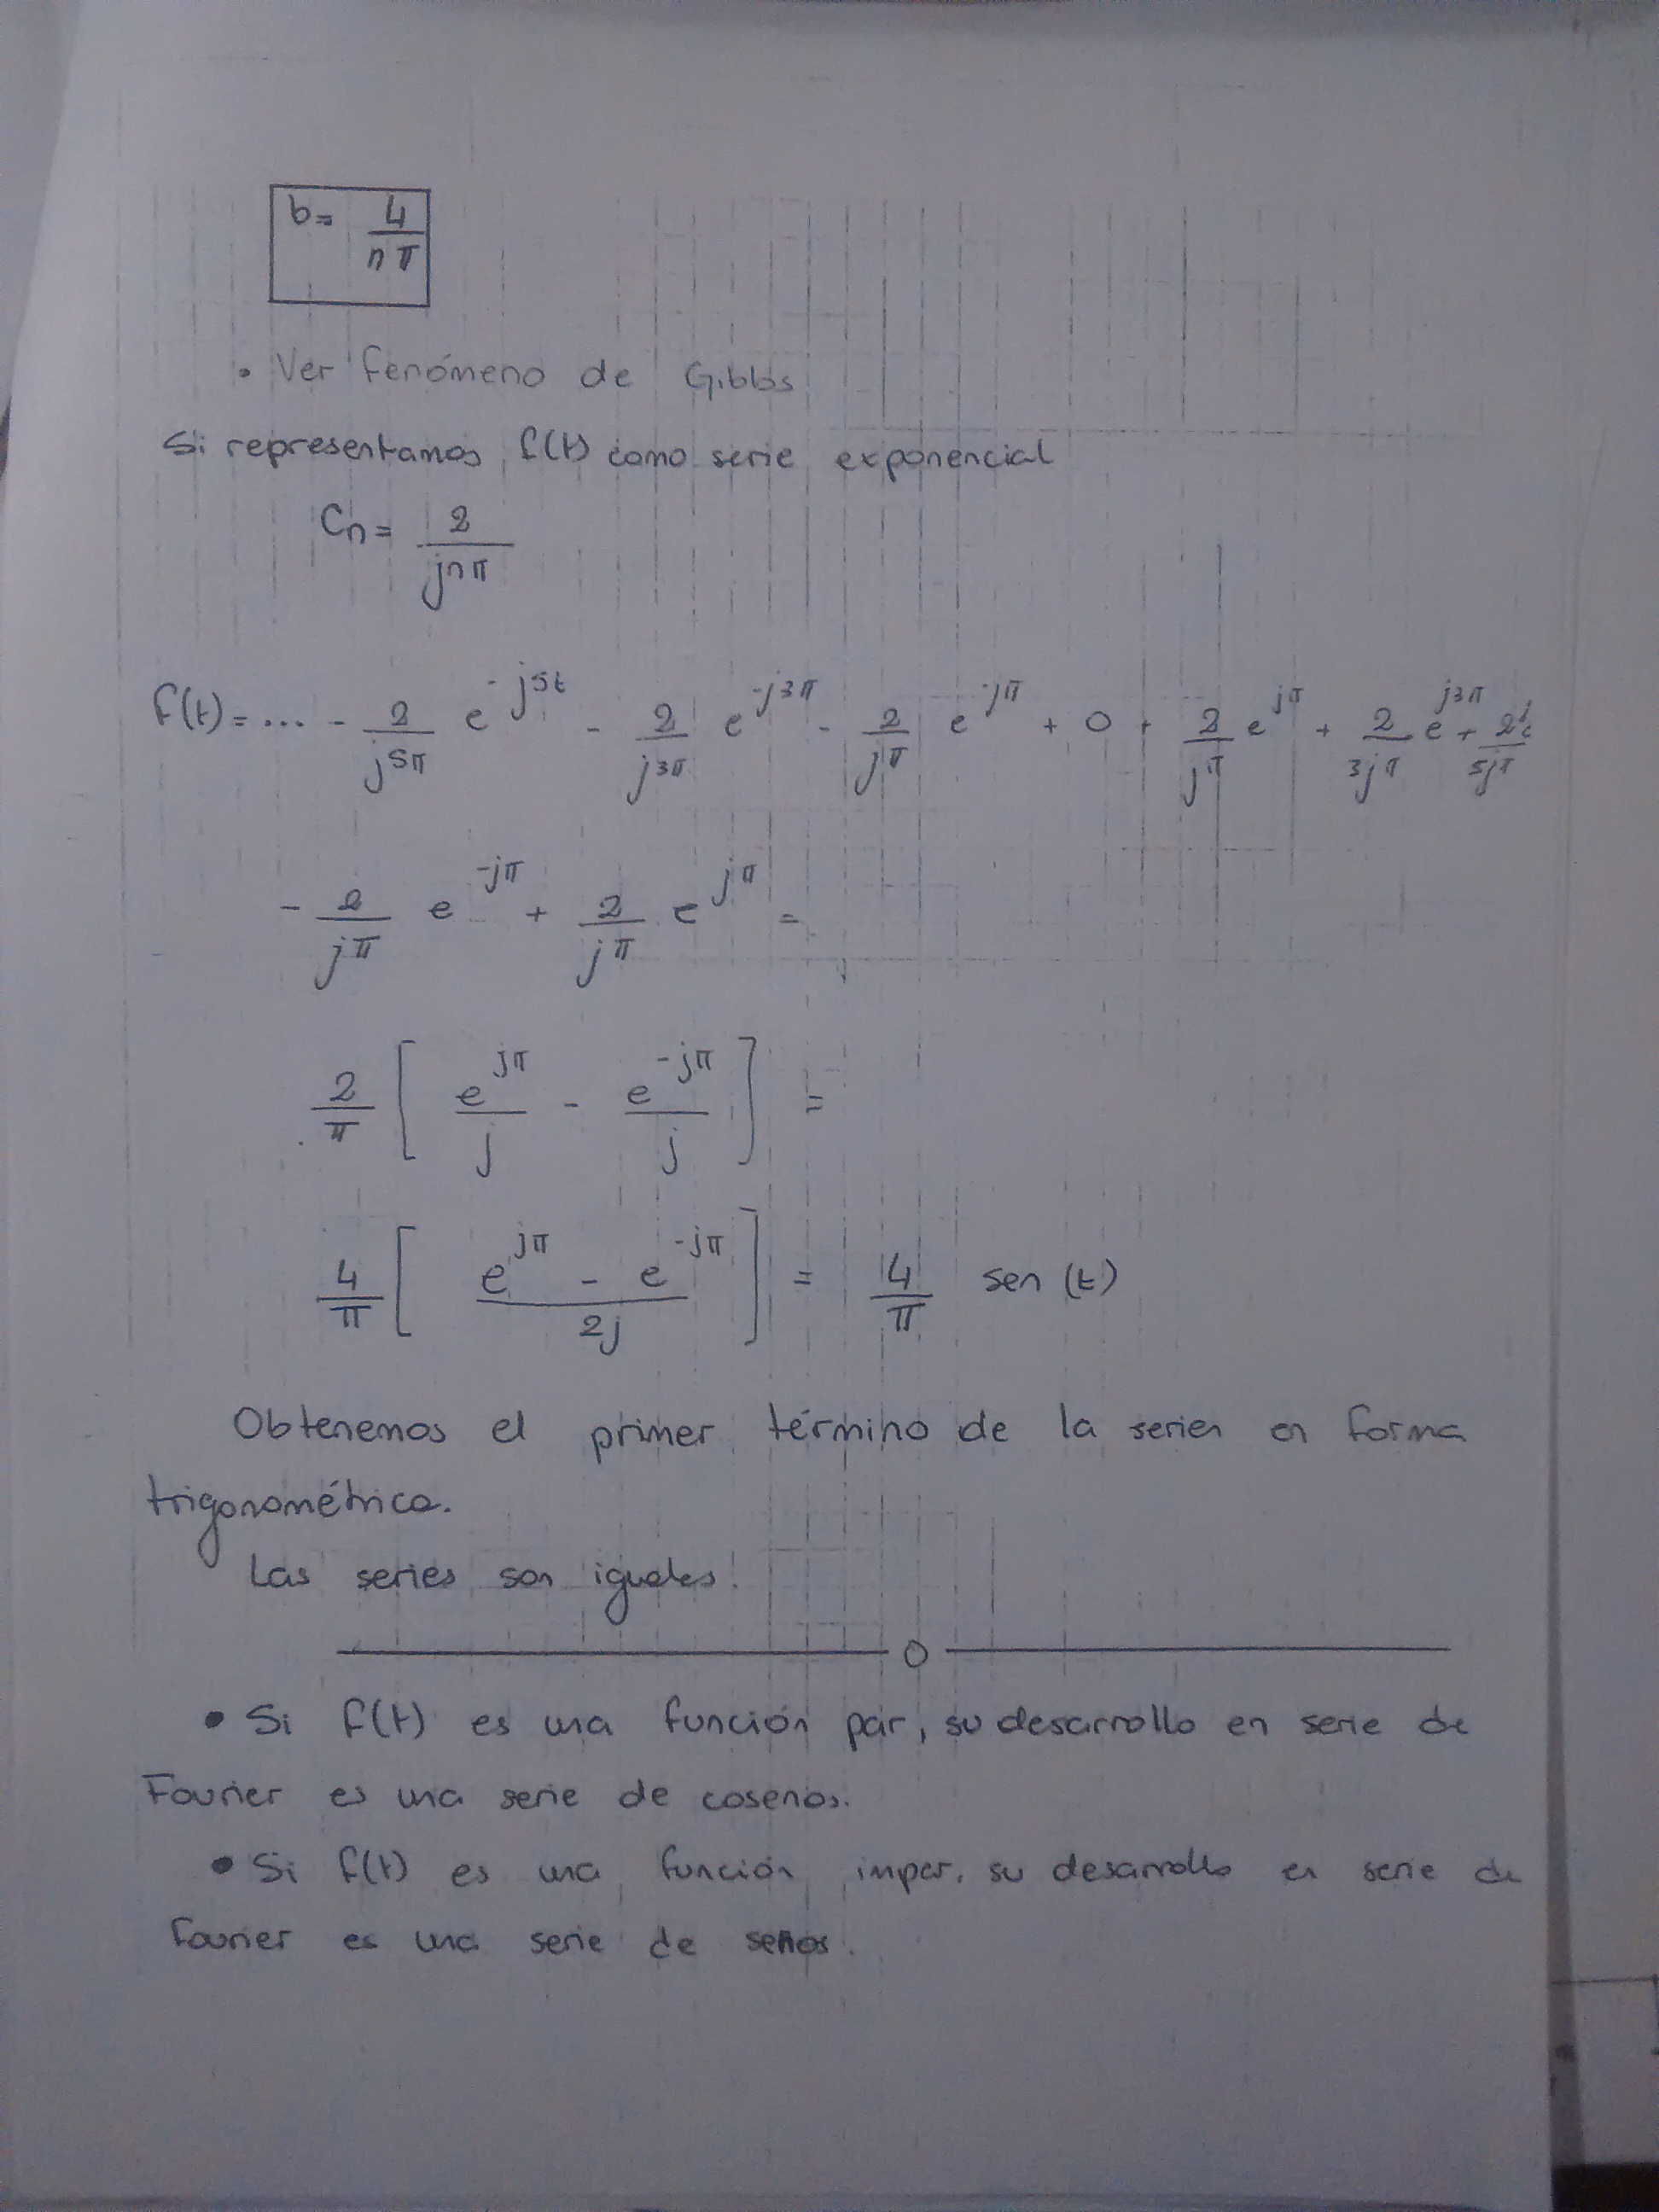 b= 4/nπ
• Ver fenómeno de Gibbs
Si representamos f(t) como serie exponencial
Cn= 2/jnπ
f(t)= ... - 2/j5π e^-j5t - 2/j3π e^-j3π - 2/jπ e^-jπ + 0 + 2/jπ e^jπ + 2/3jπ e^j3π + 2/5jπ
- 2/jπ e^-jπ + 2/jπ e^jπ =
2/π [ e^jπ/j - e^-jπ/j ] =
4/π [ (e^jπ - e^-jπ)/2j ] = 4/π sen (t)
Obtenemos el primer término de la serien en forma
trigonométrica.
Las series son iguales.
O
• Si f(t) es una función par, su desarrollo en serie de
Fourier es una serie de cosenos.
• Si f(t) es una función impar, su desarrollo en serie de
Fourier es una serie de señas.